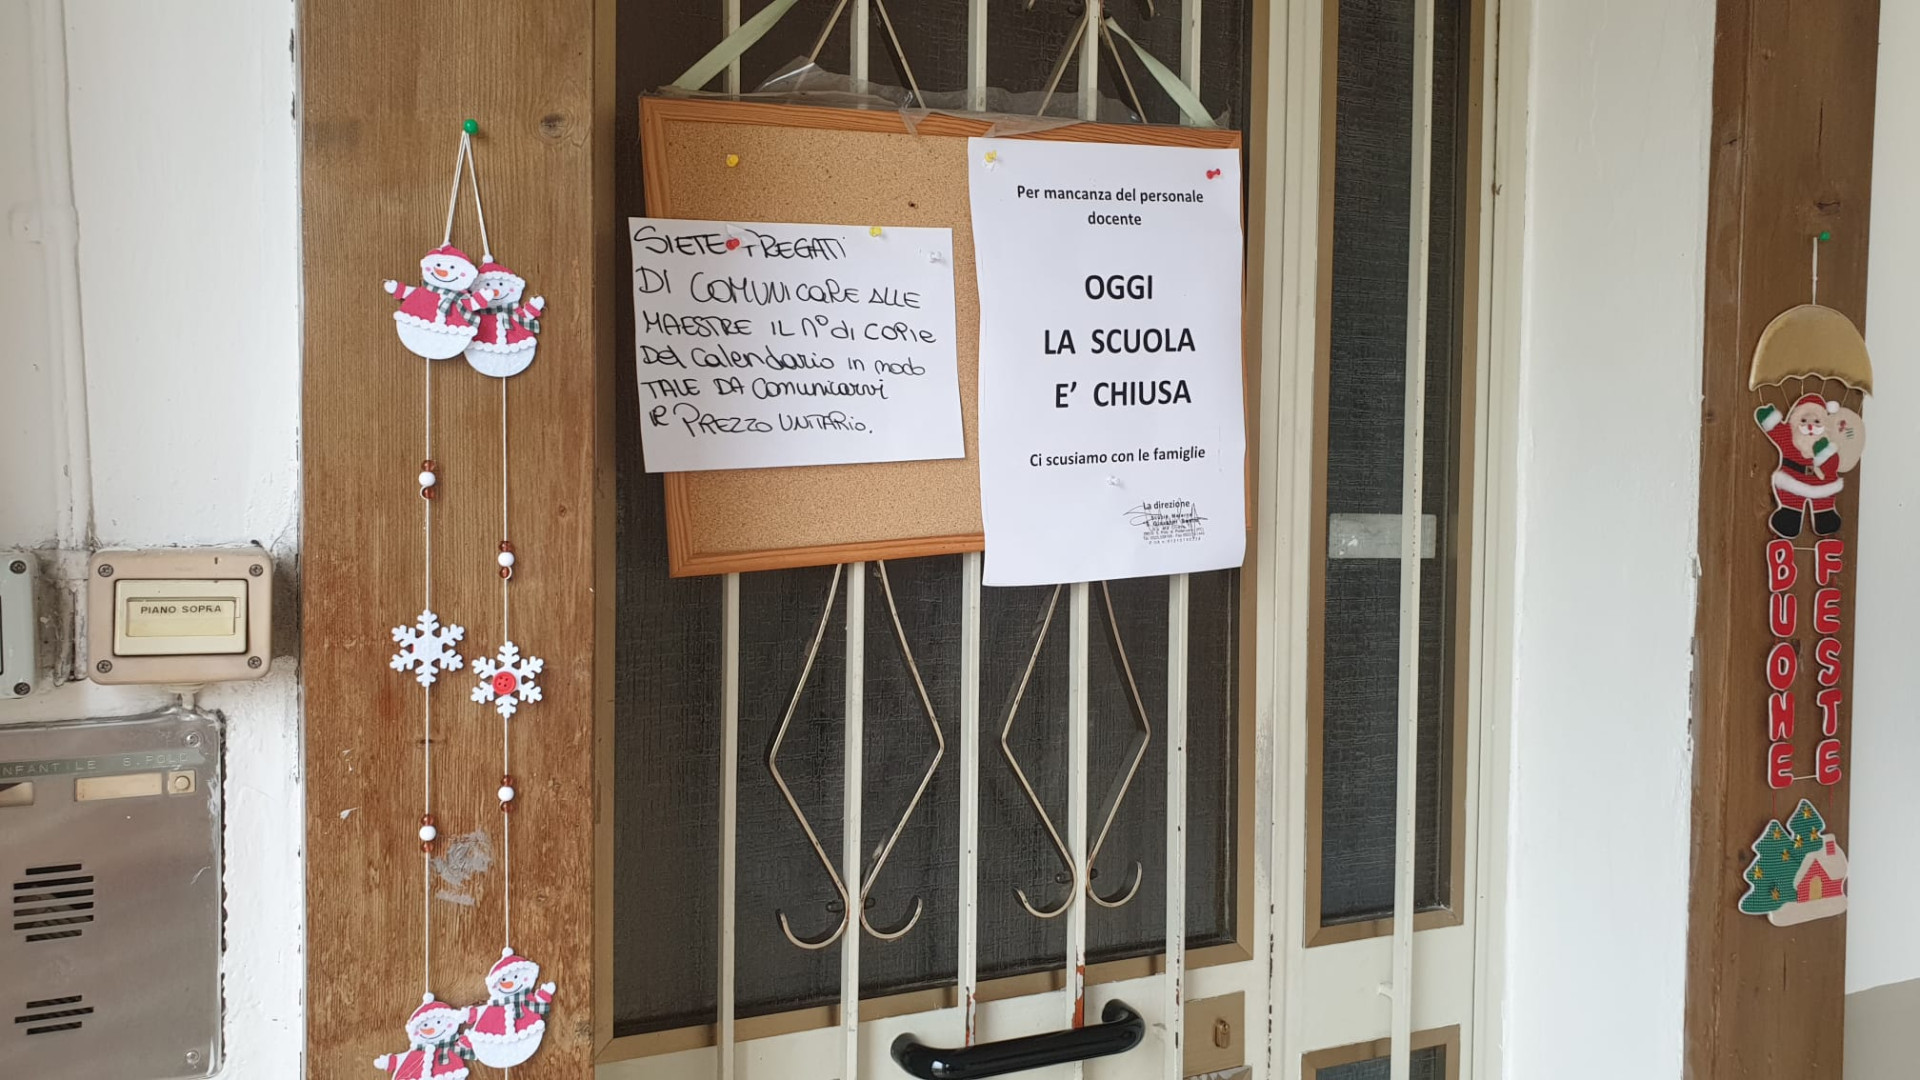 SIETE PREGATI
DI COMUNICARE ALLE
MAESTRE IL N° di COPIE
Del Calendario in modo
TALE DA Comunicarvi
il PREZZO UNITARIO.
Per mancanza del personale
docente
OGGI
LA SCUOLA
E’ CHIUSA
Ci scusiamo con le famiglie
La direzione
PIANO SOPRA
NFANTILE S.POLO
BUONE
FESTE